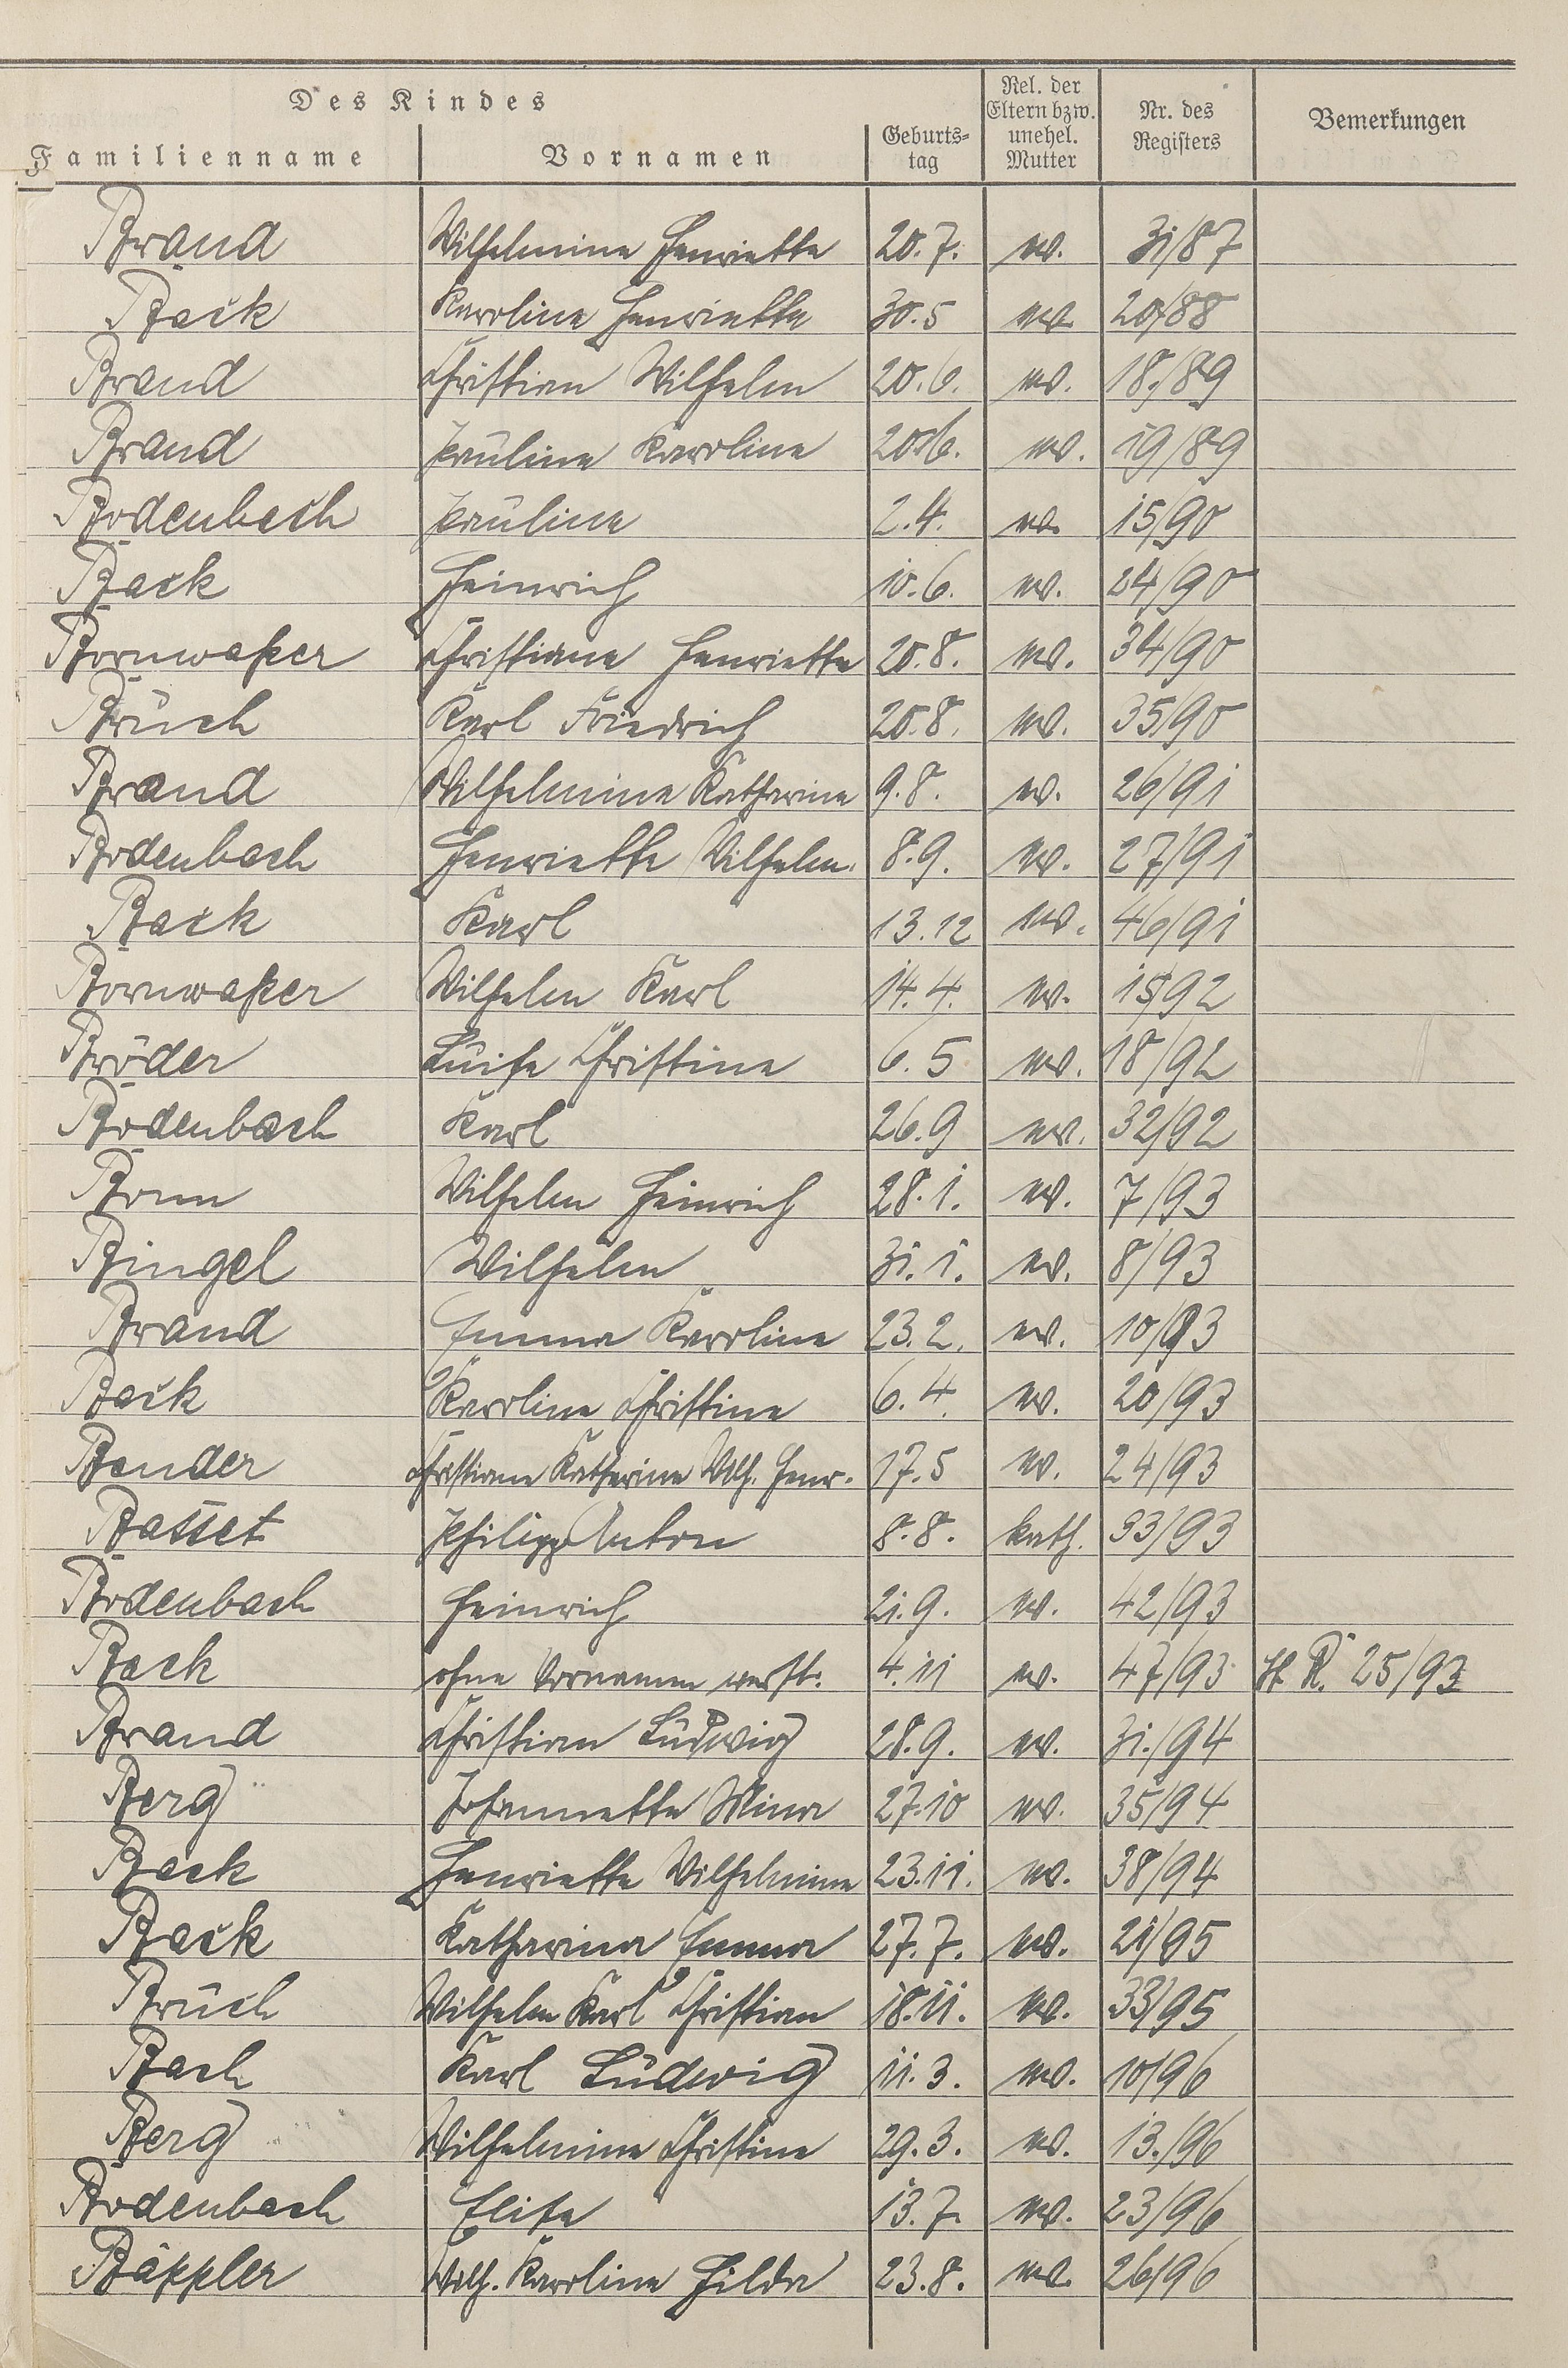 Des Kindes
Familienname Vornamen Geburts-tag Rel. der Eltern bzw. unehel. Mutter Nr. des Registers Bemerkungen
Brand Wilhelmine Henriette 20.7. ev. 31/87
Back Karoline Henriette 30.5 ev. 20/88
Brand Christian Wilhelm 20.6. ev. 18/89
Brand Pauline Karoline 20.6. ev. 19/89
Bodenbach Pauline 2.4. ev. 15/90
Back Heinrich 10.6. ev. 24/90
Bornwaßer Christiane Henriette 20.8. ev. 34/90
Bruch Karl Friedrich 20.8. ev. 35/90
Brand Wilhelmine Katharine 9.8. ev. 26/91
Bodenbach Henriette Wilhelm. 8.9. ev. 27/91
Back Karl 13.12 ev. 46/91
Bornwaßer Wilhelm Karl 14.4. ev. 15/92
Bröder Luise Christine 6.5 ev. 18/92
Bodenbach Karl 26.9 ev. 32/92
Bonn Wilhelm Heinrich 28.1. ev. 7/93
Bingel Wilhelm 31.1. ev. 8/93
Brand Emma Karoline 23.2. ev. 10/93
Back Karoline Christine 6.4. ev. 20/93
Bender Christiane Katharine Wilh. Henr. 17.5 ev. 24/93
Basset Philipp Anton 8.8. kath. 33/93
Bodenbach Heinrich 21.9. ev. 42/93
Back ohne Vornamen verst. 4.11 ev. 47/93 St. R. 25/93
Brand Christian Ludwig 28.9. ev. 31./94
Berg Johannette Mina 27.10 ev. 35/94
Back Henriette Wilhelmine 23.11. ev. 38/94
Back Katharina Emma 27.7. ev. 21/95
Bruch Wilhelm Karl Christian 18.11. ev. 33/95
Bach Karl Ludwig 11.3. ev. 10/96
Berg Wilhelmine Christine 29.3. ev. 13./96
Bodenbach Elise 13.7. ev. 23/96
Bäppler Wilh. Karoline Hilda 23.8. ev. 26/96